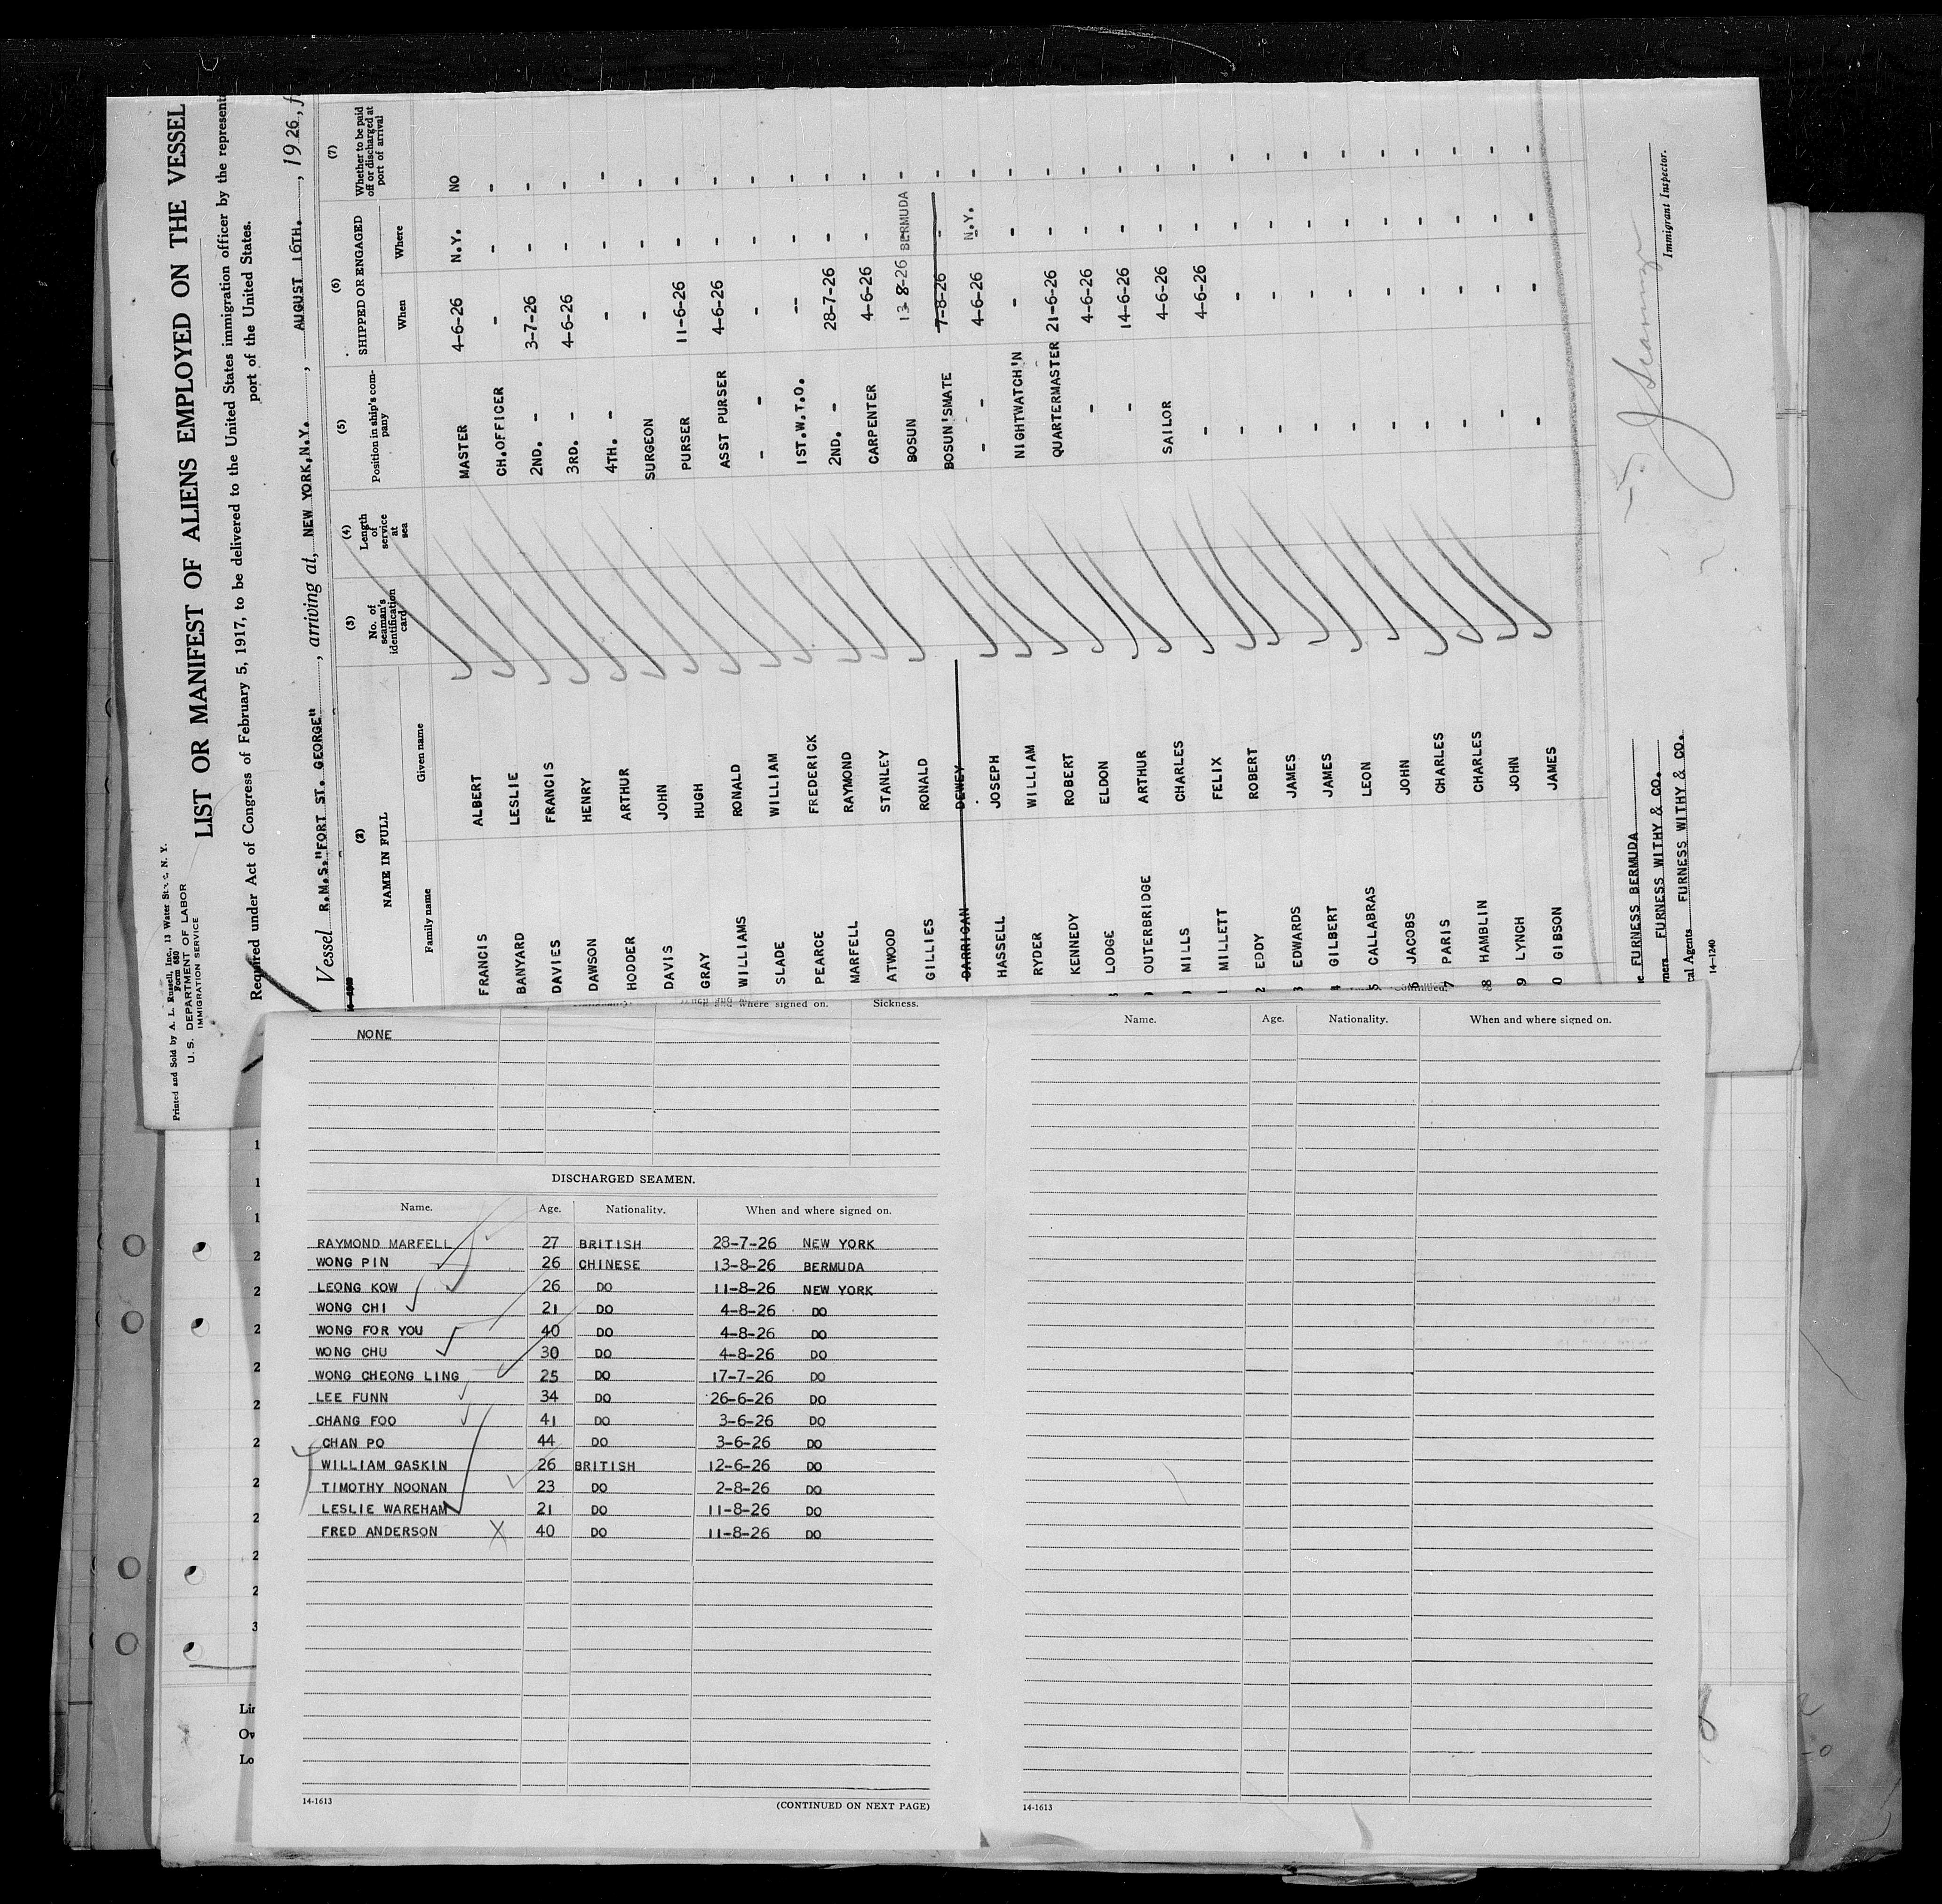 Printed and Sold by A. L. Russell, Inc., 13 Water St., N. Y.
Form 680
U. S. DEPARTMENT OF LABOR
IMMIGRATION SERVICE
LIST OR MANIFEST OF ALIENS EMPLOYED ON THE VESSEL
Required under Act of Congress of February 5, 1917, to be delivered to the United States immigration officer by the represent
port of the United States.
Vessel R.M.S. "FORT ST. GEORGE", arriving at, NEW YORK, N.Y., AUGUST 16TH., 1926, f
(2) (3) (4) (5) (6) (7)
NAME IN FULL No. of seaman's identification card Length of service at sea Position in ship's company SHIPPED OR ENGAGED Whether to be paid off or discharged at port of arrival
Family name Given name When Where
FRANCIS ALBERT MASTER 4-6-26 N.Y. NO
BANYARD LESLIE CH.OFFICER - - -
DAVIES FRANCIS 2ND. - 3-7-26 - -
DAWSON HENRY 3RD. - 4-6-26 - -
HODDER ARTHUR 4TH. - - - -
DAVIS JOHN SURGEON - - -
GRAY HUGH PURSER 11-6-26 - -
WILLIAMS RONALD ASST PURSER 4-6-26 - -
SLADE WILLIAM - - - - -
PEARCE FREDERICK 1ST.W.T.O. -- - -
MARFELL RAYMOND 2ND. - 28-7-26 - -
ATWOOD STANLEY CARPENTER 4-6-26 - -
GILLIES RONALD BOSUN 13-8-26 BERMUDA -
DARRIGAN DEWEY BOSUN'SMATE 7-8-26 - -
HASSELL JOSEPH - - 4-6-26 N.Y. -
RYDER WILLIAM NIGHTWATCH'N - - -
KENNEDY ROBERT QUARTERMASTER 21-6-26 - -
LODGE ELDON - 4-6-26 - -
OUTERBRIDGE ARTHUR - 14-6-26 - -
MILLS CHARLES SAILOR 4-6-26 - -
1 MILLETT FELIX - 4-6-26 - -
2 EDDY ROBERT - - - -
3 EDWARDS JAMES - - - -
4 GILBERT JAMES - - - -
5 CALLABRAS LEON - - - -
6 JACOBS JOHN - - - -
7 PARIS CHARLES - - - -
8 HAMBLIN CHARLES - - - -
9 LYNCH JOHN - - - -
0 GIBSON JAMES - - - -
e FURNESS BERMUDA
ners FURNESS WITHY & CO.
cal Agents FURNESS WITHY & CO.
14-1240
Immigrant Inspector.
where signed on. Sickness.
NONE
DISCHARGED SEAMEN.
Name. Age. Nationality. When and where signed on.
RAYMOND MARFELL 27 BRITISH 28-7-26 NEW YORK
WONG PIN 26 CHINESE 13-8-26 BERMUDA
LEONG KOW 26 DO 11-8-26 NEW YORK
WONG CHI 21 DO 4-8-26 DO
WONG FOR YOU 40 DO 4-8-26 DO
WONG CHU 30 DO 4-8-26 DO
WONG CHEONG LING 25 DO 17-7-26 DO
LEE FUNN 34 DO 26-6-26 DO
CHANG FOO 41 DO 3-6-26 DO
CHAN PO 44 DO 3-6-26 DO
WILLIAM GASKIN 26 BRITISH 12-6-26 DO
TIMOTHY NOONAN 23 DO 2-8-26 DO
LESLIE WAREHAM 21 DO 11-8-26 DO
FRED ANDERSON X 40 DO 11-8-26 DO
14-1613 (CONTINUED ON NEXT PAGE)
Name. Age. Nationality. When and where signed on.
14-1613
Lin
Ow
Lo